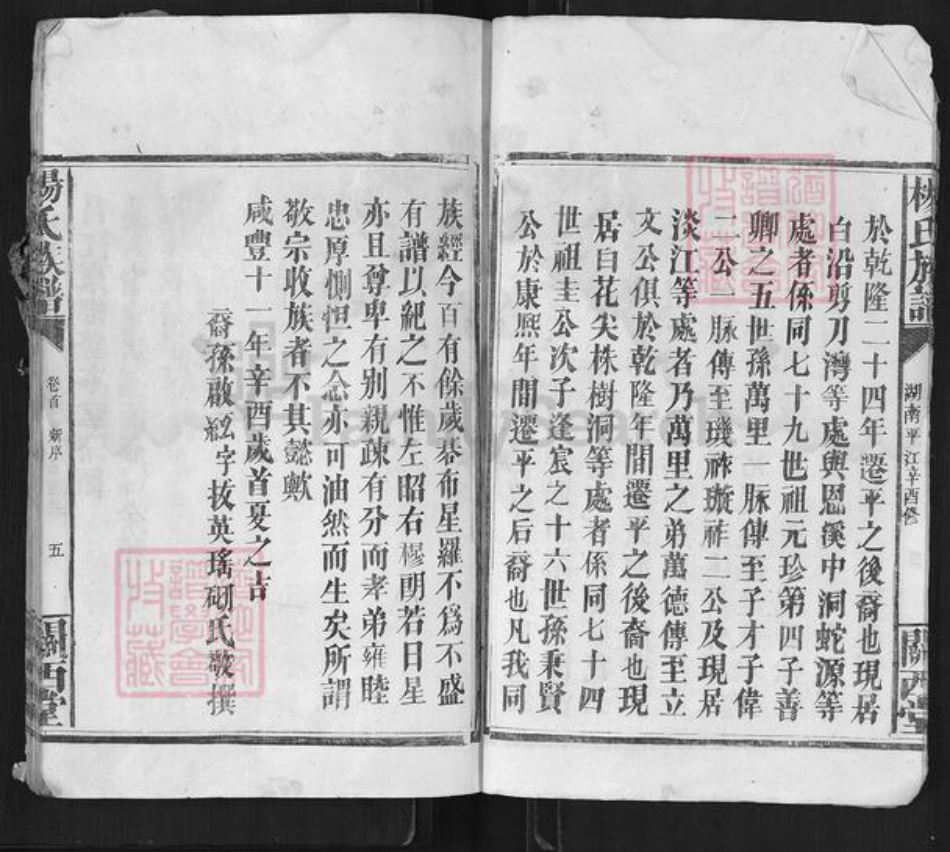 楊氏族譜
湖南平江辛酉修
關西堂
於乾隆二十四年遷平之後裔也現居
白沿剪刀灣等處與恩溪中洞蛇源等
處者係同七十九世祖元珍第四子善
卿之五世孫萬里一脈傳至子才子偉
二公一脈傳至璣祚璇祚二公及現居
淡江等處者乃萬里之弟萬德傳至立
文公俱於乾隆年間遷平之後裔也現
居白花尖株樹洞等處者係同七十四
世祖圭公次子逢宸之十六世孫秉賢
公於康熙年間遷平之后裔也凡我同
族經今百有餘歲碁布星羅不爲不盛
有譜以紀之不惟左昭右穆朗若日星
亦且尊卑有別親疎有分而孝弟雍睦
忠厚惻怛之念亦可油然而生矣所謂
敬宗收族者不其懿歟
咸豐十一年辛酉歲首夏之吉
裔孫啟紭字拔英瑤砌氏敬撰
楊氏族譜
卷首
新序
五
關西堂
譜學會
收藏